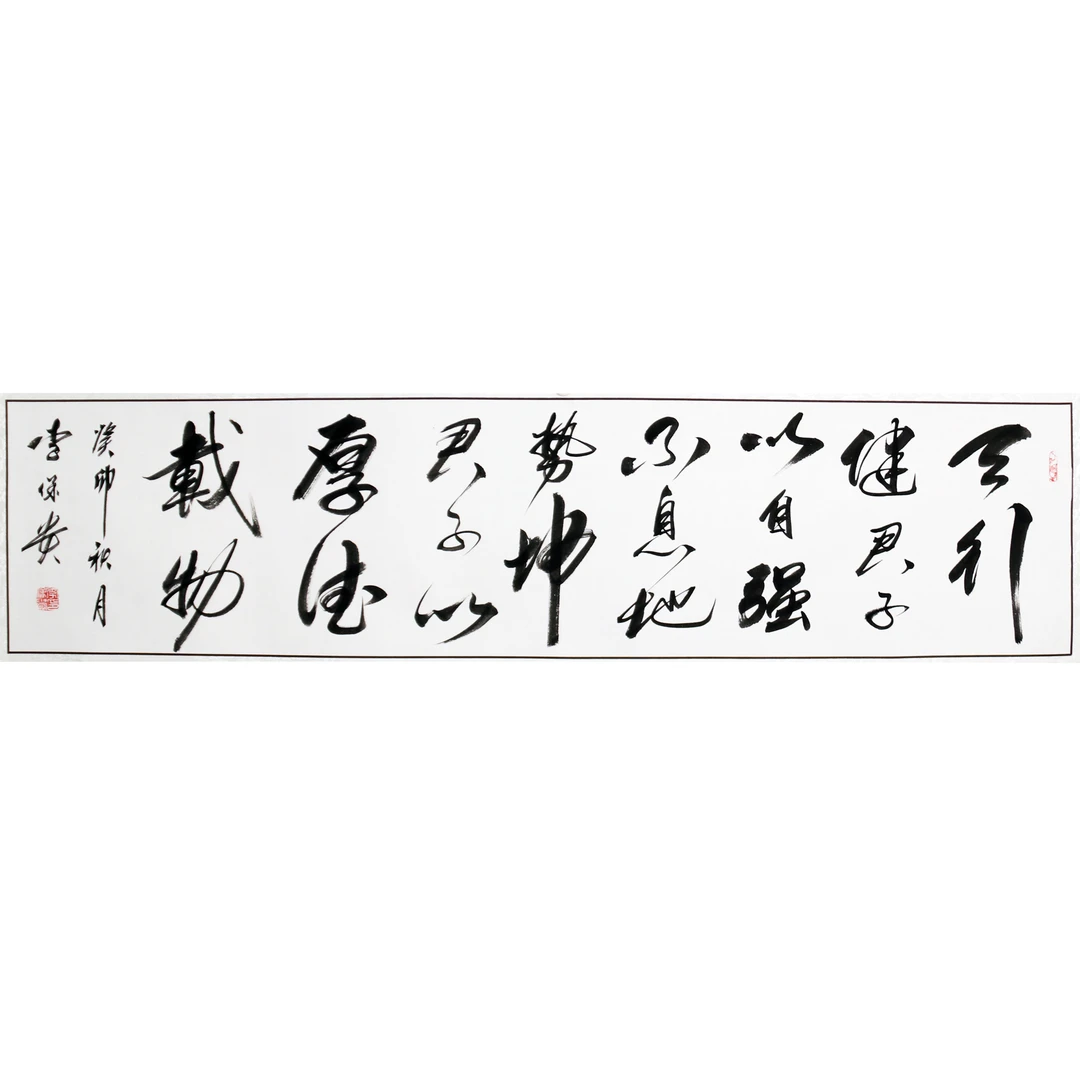 天行
健君子
以自强
不息地
势坤
君子以
厚德
載物
癸卯秋月
李保安